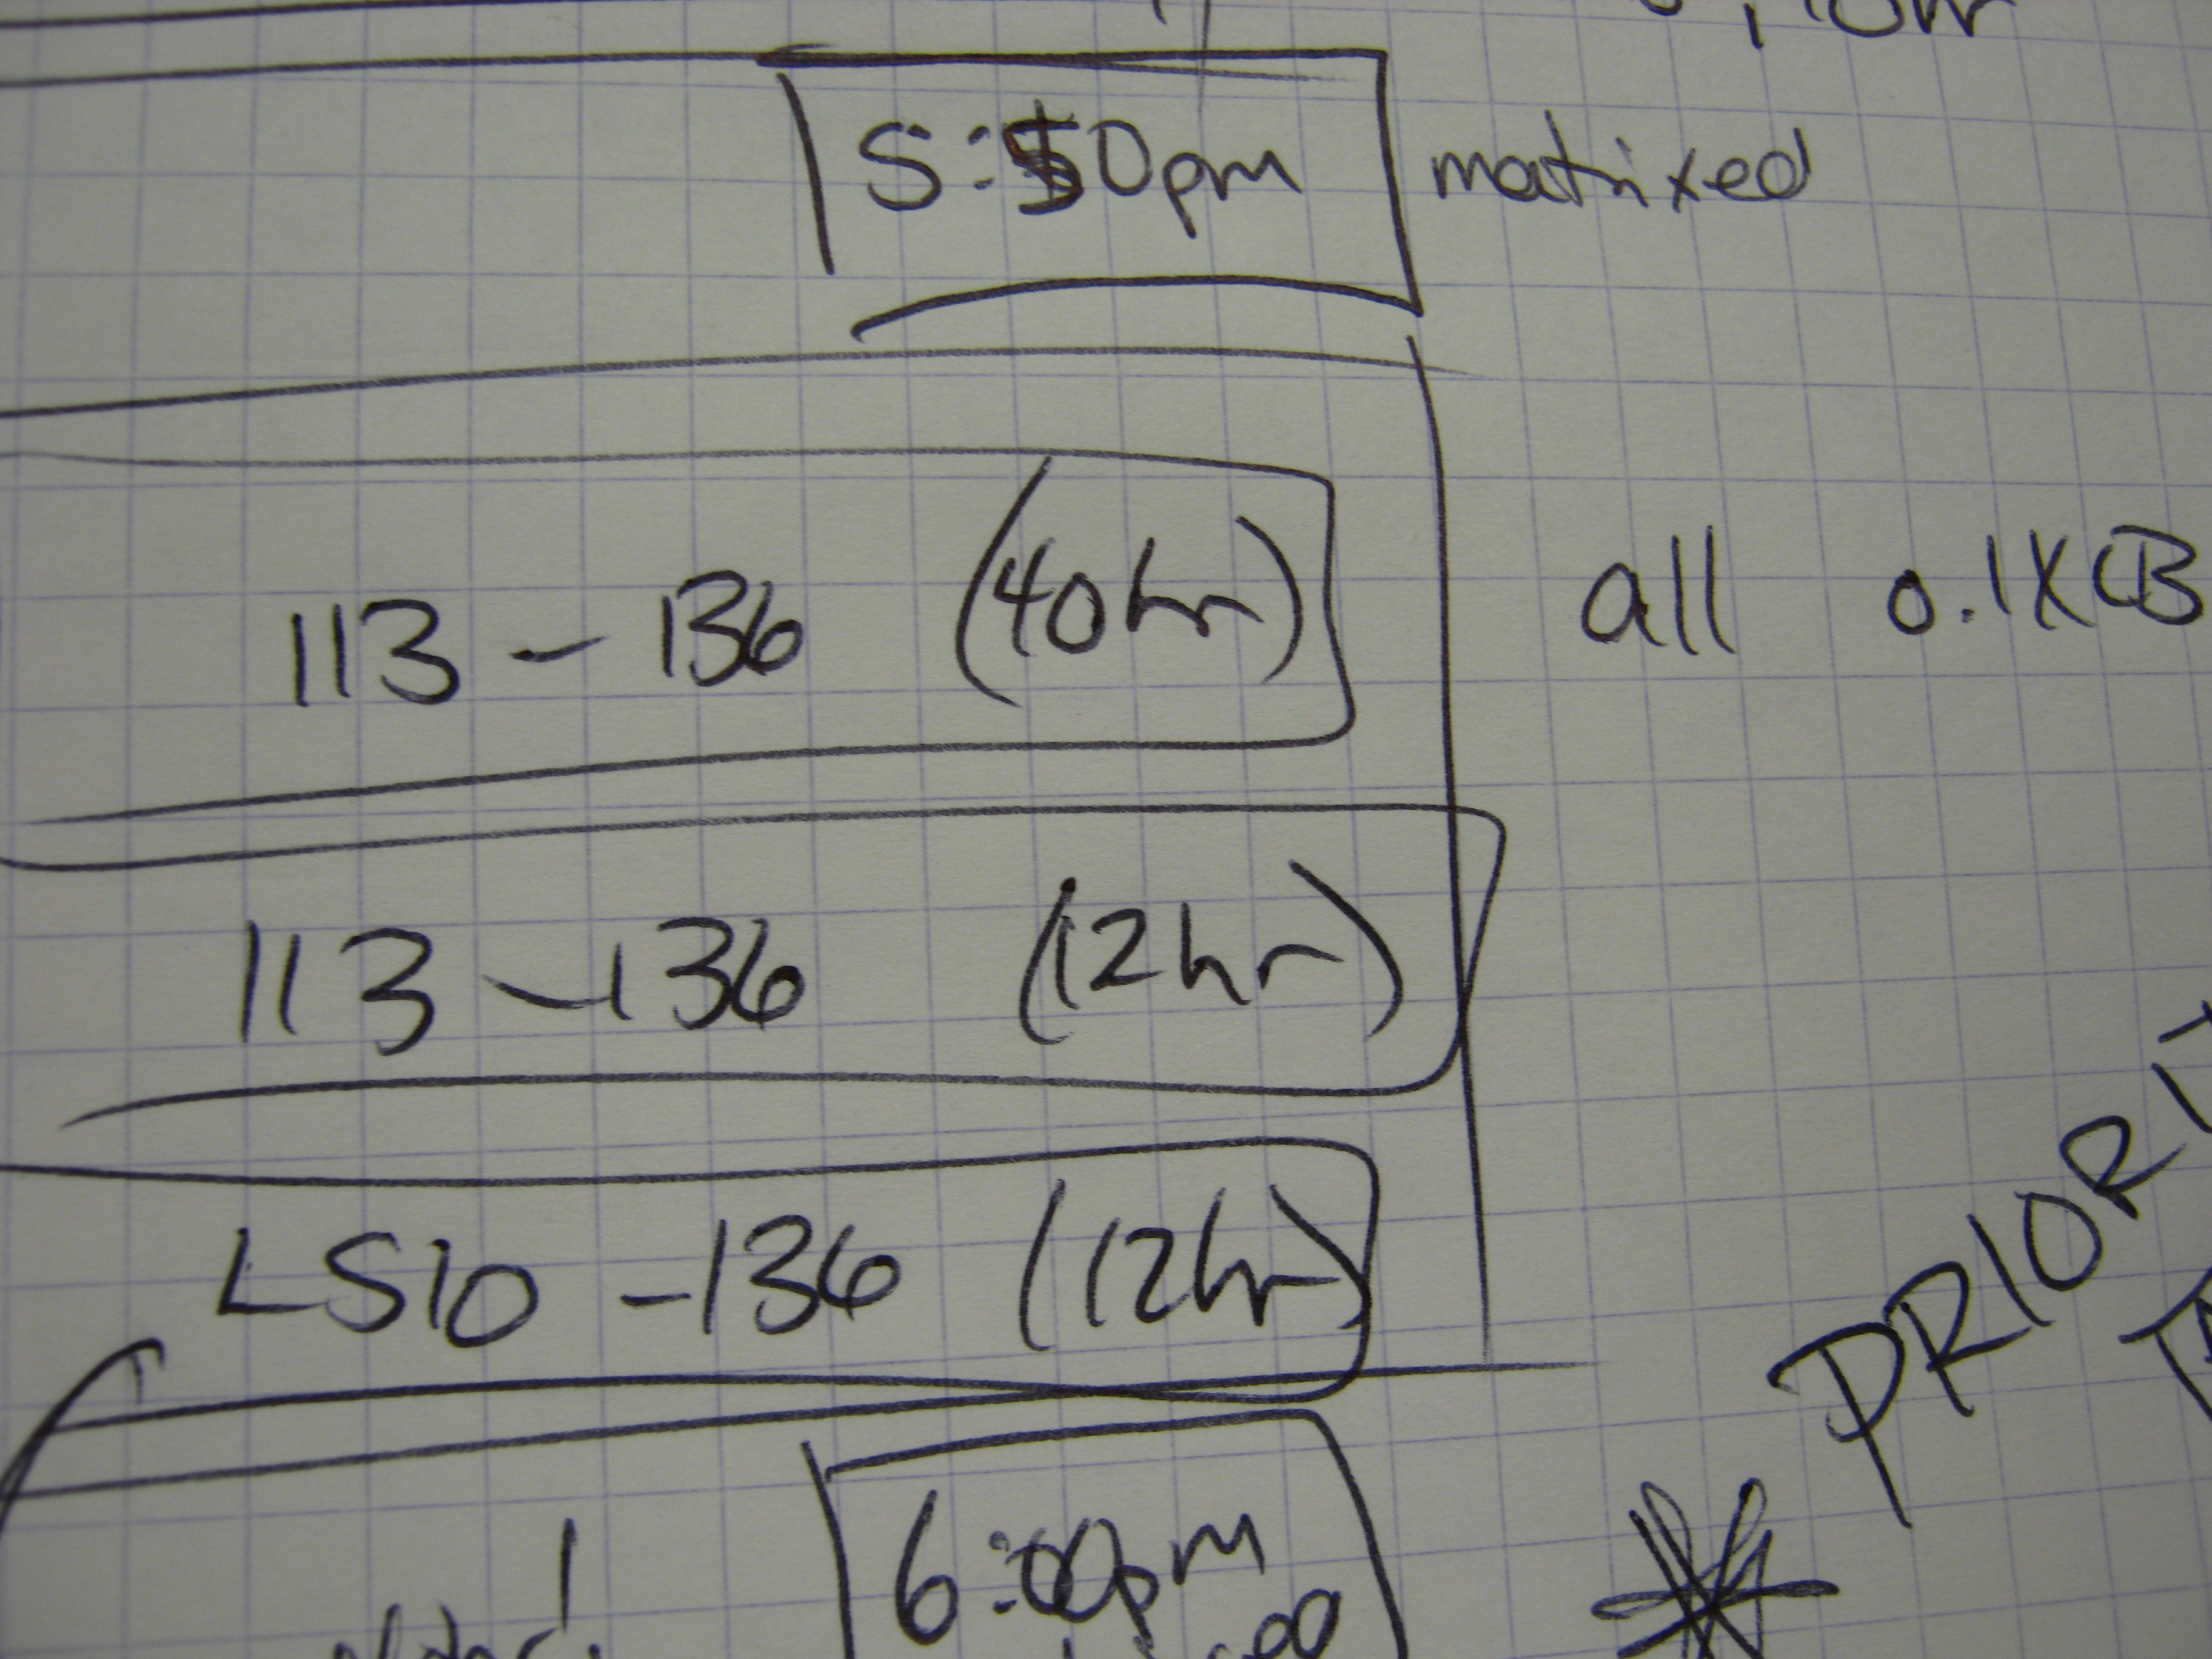 5:50pm matrixed
113 - 136 (40hr) all 0.1XCB
113 - 136 (12hr)
LS10 - 136 (12hr)
6:00pm